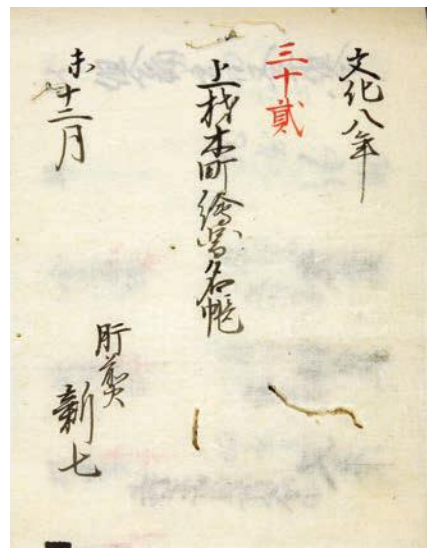 文化八年
三十貳
上材木町繪図名帳
未十二月
肝煎
新七